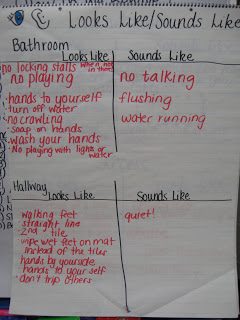 Looks Like/Sounds Like
Bathroom
Looks Like
no locking stalls when not in there
no playing
hands to yourself
turn off water
no crawling
soap on hands
wash your hands
No playing with lights or water
Sounds Like
no talking
flushing
water running
Hallway
Looks Like
walking feet
straight line
2nd tile
wipe wet feet on mat
instead of the tiles
hands by yourside
hands to your self
don't trip others
Sounds Like
quiet!